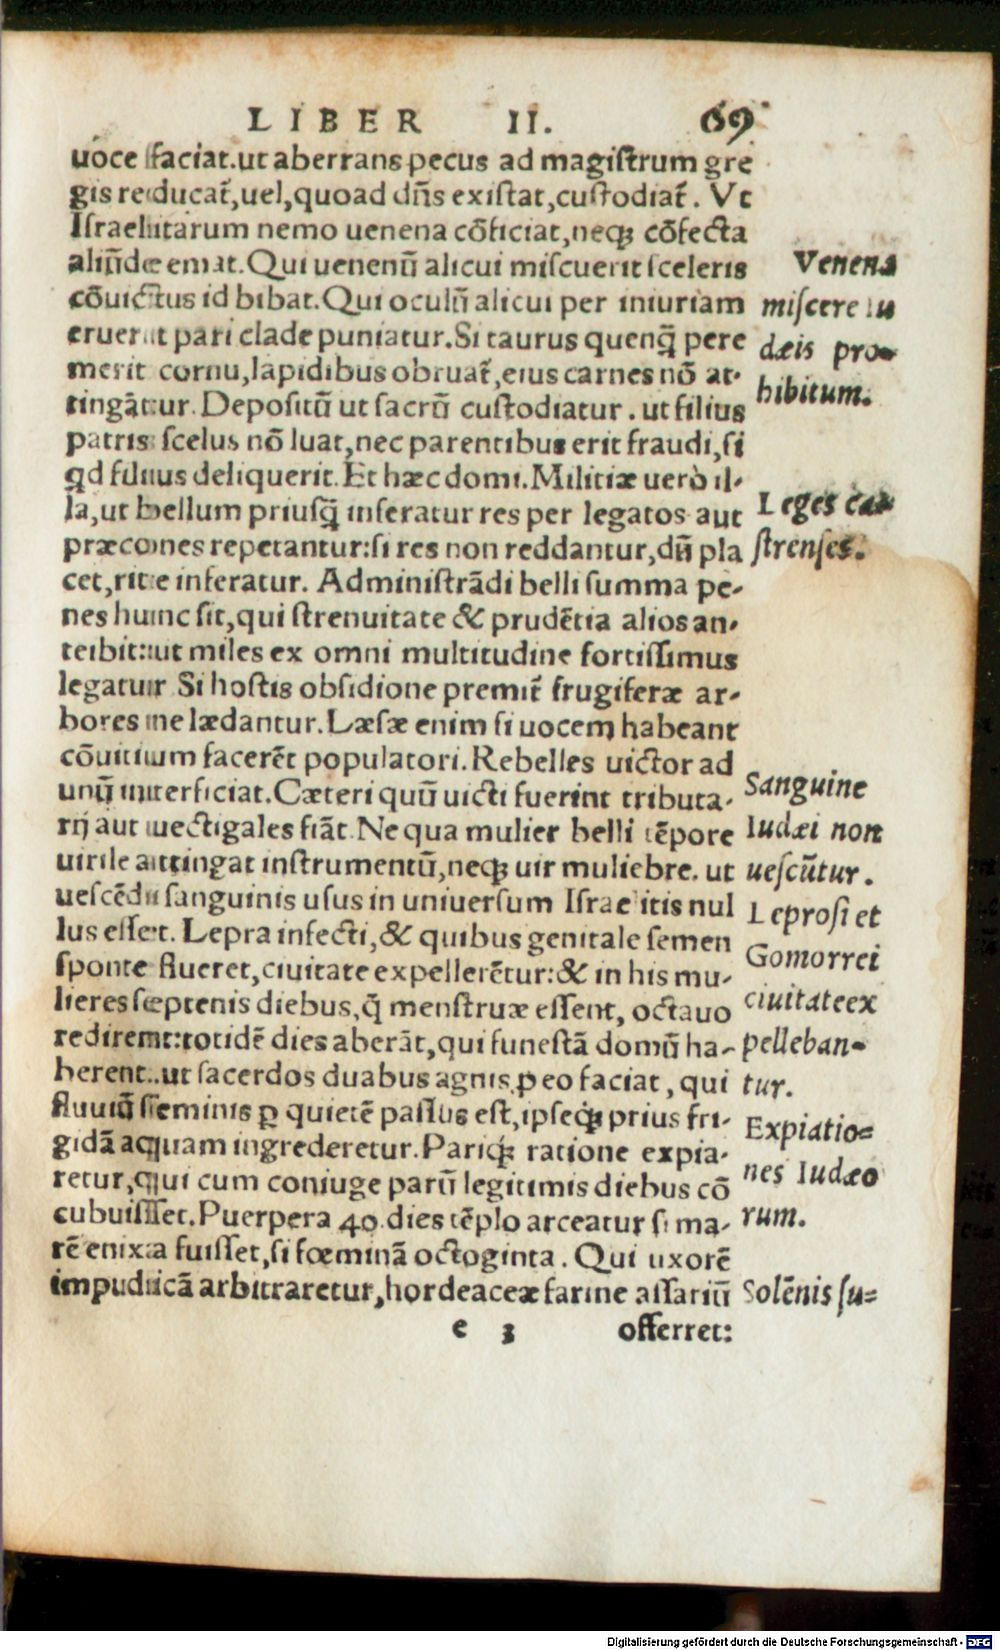 LIBER II. 69
uoce faciat. ut aberrans pecus ad magiſtrum gre
gis reducat̃, uel, quoad dñs exiſtat, cuſtodiat̃. Vt
Iſraelitarum nemo uenena cõficiat, neqꝫ cõfecta
aliũde emat. Qui uenenũ alicui miſcuerit ſceleris
cõuictus id bibat. Qui oculũ alicui per iniuriam
eruerit pari clade puniatur. Si taurus quenq̃ pere
merit cornu, lapidibus obruat̃, eius carnes nõ at-
tingãtur. Depoſitũ ut ſacrũ cuſtodiatur. ut filius
patris ſcelus nõ luat, nec parentibus erit fraudi, ſi
qd filius deliquerit. Et hæc domi. Militiæ uerò il-
la, ut bellum priuſq̃ inferatur res per legatos aut
præcones repetantur: ſi res non reddantur, dũ pla
cet, rite inferatur. Adminiſtrãdi belli ſumma pe-
nes hunc ſit, qui ſtrenuitate & prudẽtia alios an-
teibit: ut miles ex omni multitudine fortiſſimus
legatur Si hoſtis obſidione premit̃ frugiferæ ar-
bores ne lædantur. Læſæ enim ſi uocem habeant
cõuitium facerẽt populatori. Rebelles uictor ad
unũ interficiat. Cæteri quũ uicti fuerint tributa-
rij aut uectigales fiãt. Ne qua mulier belli tẽpore
uirile attingat inſtrumentũ, neqꝫ uir muliebre. ut
ueſcẽdi ſanguinis uſus in uniuerſum Iſraelitis nul
lus eſſet. Lepra infecti, & quibus genitale ſemen
ſponte flueret, ciuitate expellerẽtur: & in his mu-
lieres ſeptenis diebus, q̃ menſtruæ eſſent, octauo
redirent: totidẽ dies aberãt, qui funeſtã domũ ha-
berent. ut ſacerdos duabus agnis ꝓ eo faciat, qui
fluuiũ ſeminis ꝑ quietẽ paſſus eſt, ipſeqꝫ prius fri-
gidã aquam ingrederetur. Pariqꝫ ratione expia-
retur, qui cum coniuge parũ legitimis diebus cõ
cubuiſſet. Puerpera 40 dies tẽplo arceatur ſi ma-
rẽ enixa fuiſſet, ſi fœminã octoginta. Qui uxorẽ
impudicã arbitraretur, hordeaceæ farine aſſariũ
e 3 offerret:
Venena
miſcere Iu
dæis pro-
hibitum.
Leges ca-
ſtrenſes.
Sanguine
Iudæi non
ueſcũtur.
Leproſi et
Gomorrei
ciuitate ex
pelleban-
tur.
Expiatio-
nes Iudæo
rum.
Solẽnis ſu-
Digitalisierung gefördert durch die Deutsche Forschungsgemeinschaft - DFG